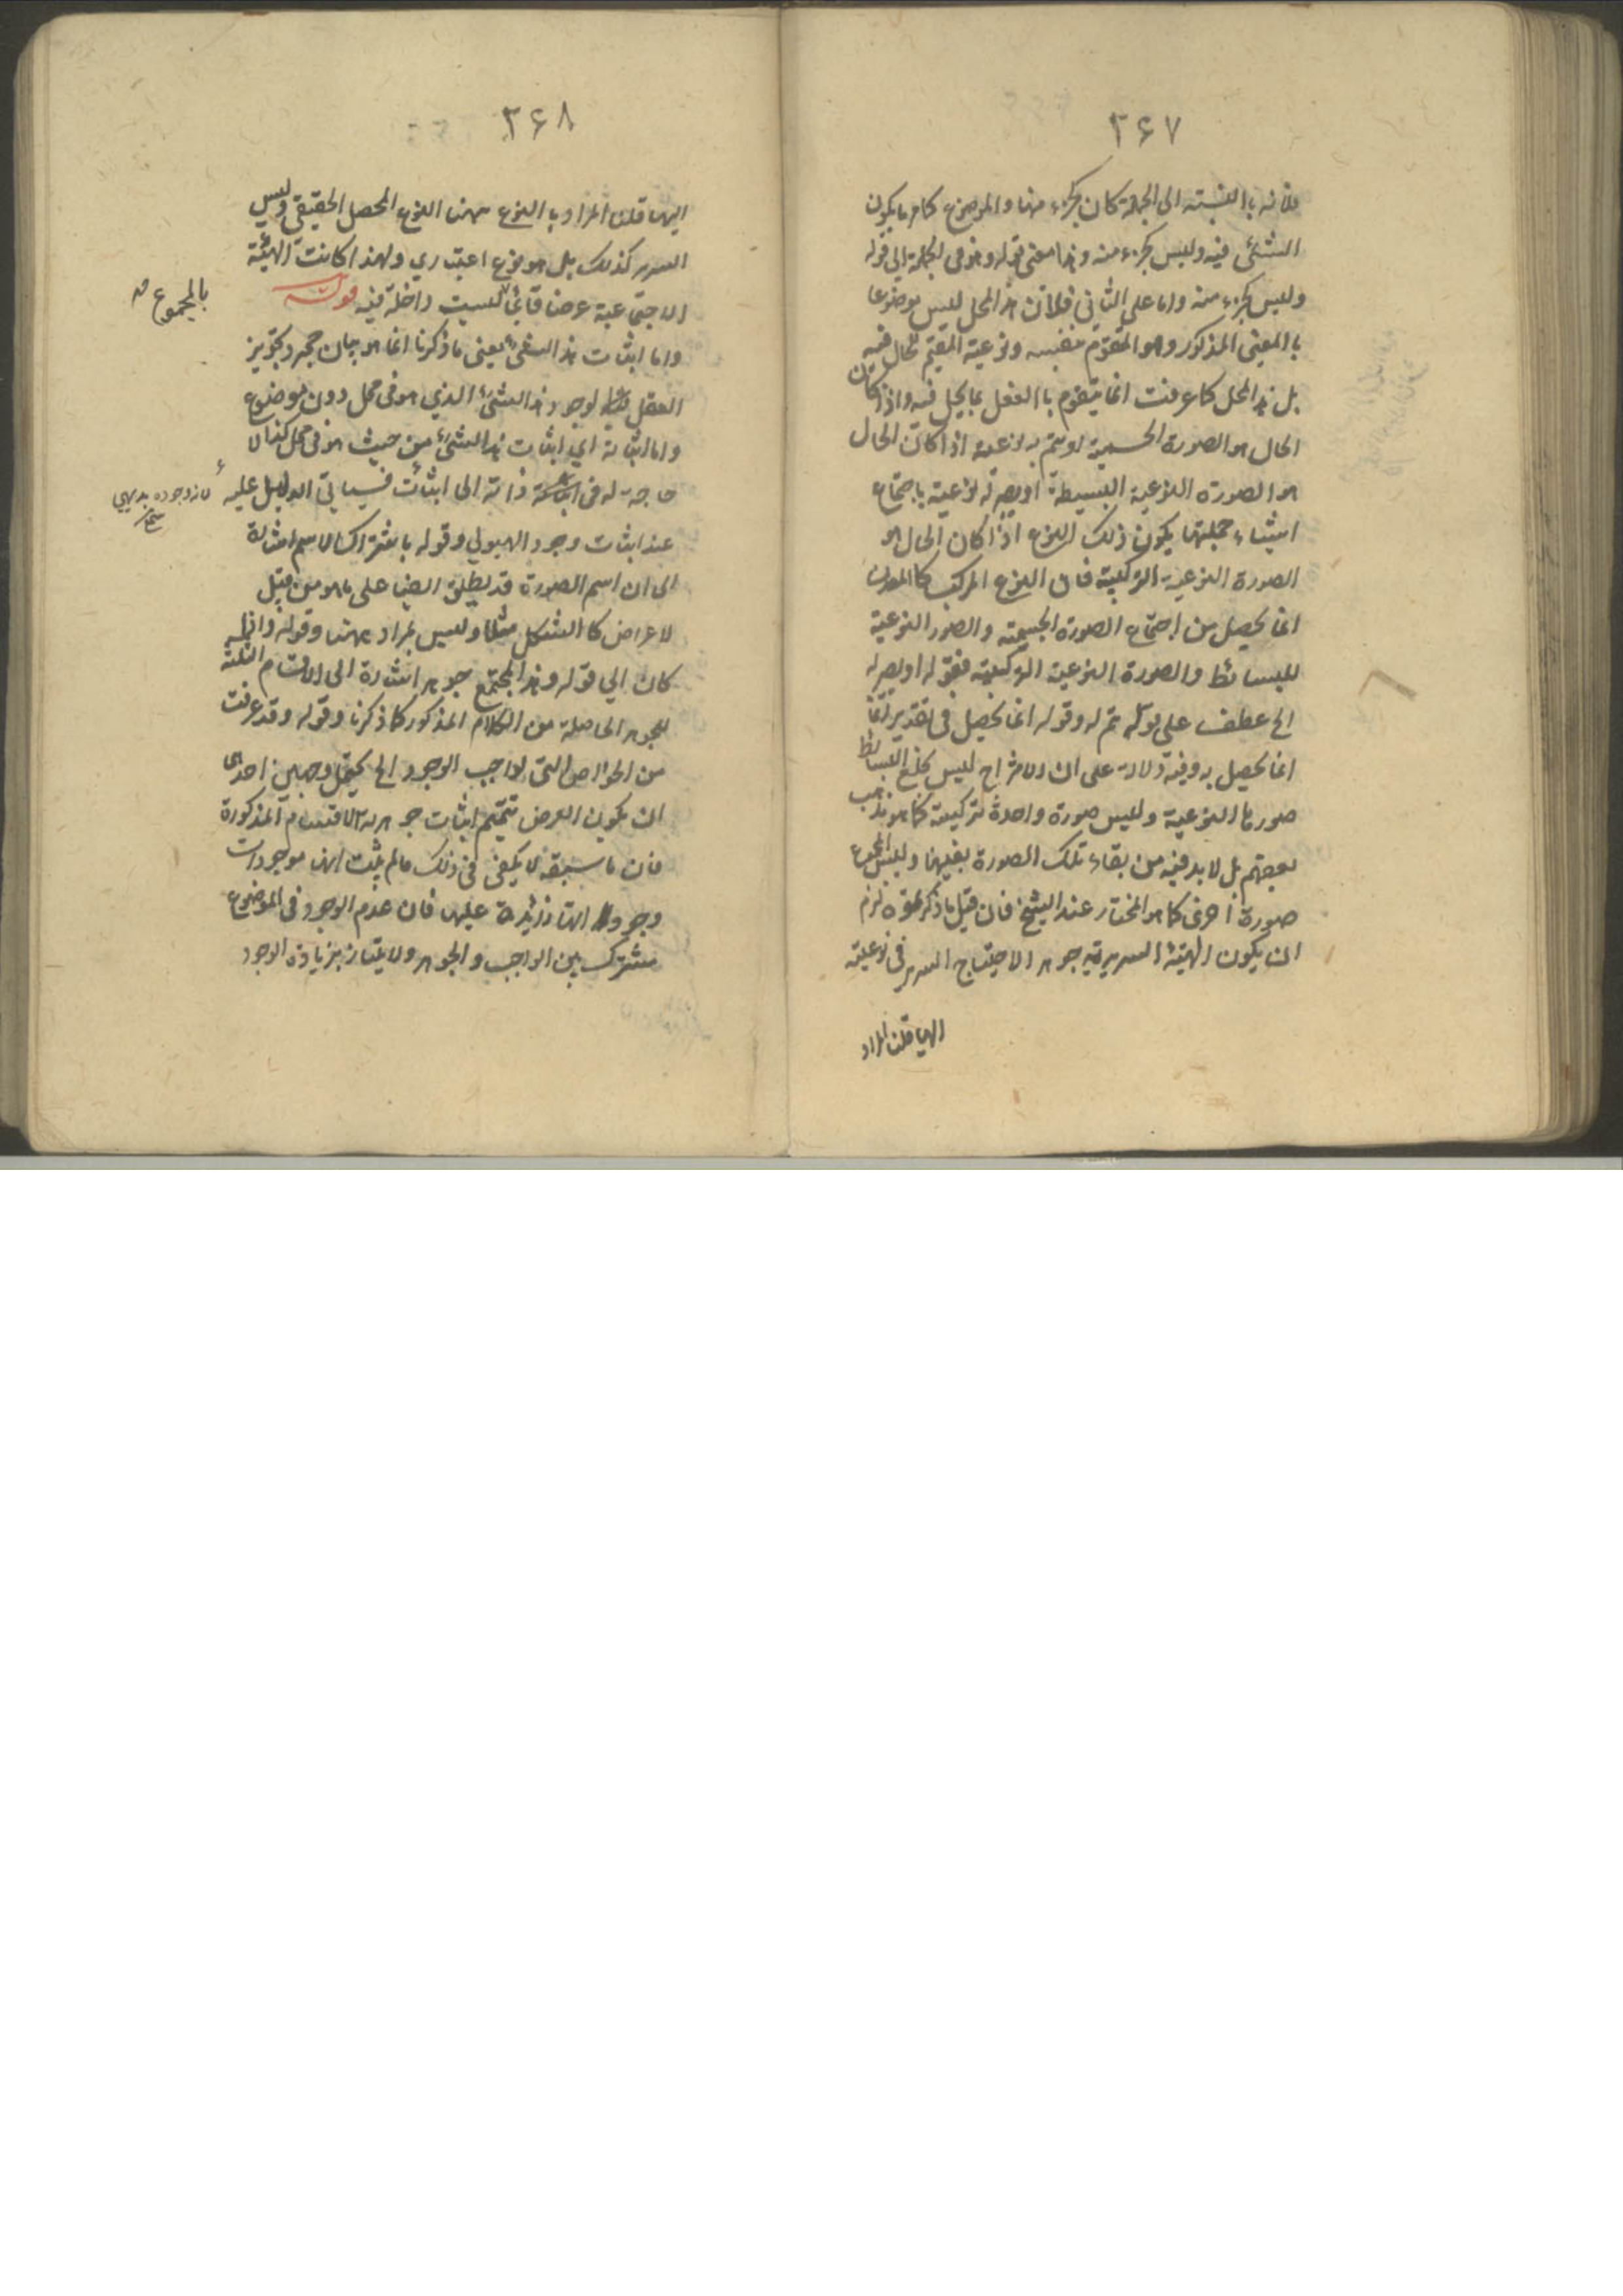 ٣۶٧
فلأنه باالنسبته الى الجملة كان كجزء منها والموضوع كلام ما يكون
الشئ فيه وليس كجزء منه وهذا معنى قوله وهو فى الجملة الي قوله
وليس كجزء منه واما على الثاني فلان هذ المحل ليس موضوعا
باالمعنى المذكور وهو المتقوم بنفسه ونوعية المقيم لحال فيه
بل هذ المحل كما عرفت انما يتقوم باالفعل بما يحل فيه واذا كان
الحال هو الصورة الجسمية او يتم به نوعية اذا كان الحال
هو الصورة النوعية البسيطة او يصير له نوعية باجتماع
اشياء جملتها يكون ذلك النوع اذا كان الحال هو
الصورة النوعية التركيبية فان النوع المركب كالمعدن
انما يحصل من اجتماع الصورة الجسمية والصور النوعية
للبسائط والصورة النوعية التركيبية فقوله او يصير له
الخ عطف على قوله يتم له وقوله انما يحصل فى تقدير انما
انما يحصل به وفيه دلالة على ان الامتزاج ليس بخلع البسائط
صورها النوعية ولبس صورة واحدة تركيبية كما هو مذهب
بعضهم بل لا بد فيه من بقاء تلك الصورة بعينها ولبس المجموع
صورة اخرى كما هو المختار عند الشيخ فان قيل ما ذكرتموه لزم
ان يكون الهيئة السريرية جوهر الاحتياج السرير فى نوعيته
اليها قلنا المراد
٣۶٨
اليها قلنا المراد باالنوع ههنا النوع المحصل الحقيقي وليس
السرير كذلك بل هو نوع اعتباري ولهذا كانت الهيئة
الاجتماعية عرضا قائما ليست داخلة فيه قوله
بالمجموع
واما اثبات هذ الشئ يعنى ما ذكرنا انما هو بيان مجرد تجويز
العقل لوجود هذ الشئ الذي هو فى محل دون موضوع
واما اثباته اي اثبات هذ الشئ من حيث هو فى محل كذا لا
حاجة له فى ذاته الى اثبات فسياتي الدليل عليه
لان وجوده بديهي
عند اثبات وجود الهيولي وقوله باشتراك الاسم اشارة
الى ان اسم الصورة قد يطلق ايضا على ما هو من قبل
لاعراض كا الشكل مثلا وليس بمراد ههنا وقوله واذا
كان الي قوله وهذ المجتمع جوهر اشارة الى الاقسام الثلثة
للجوهر الحاصلة من الكلام المذكور كما ذكرنا وقوله وقد عرفت
من الخواص التى لواجب الوجود الخ يحتمل وجهين احدهما
ان يكون الغرض تتميم اثبات جوهرية الاقسام المذكورة
فان ما سبقه لا يكفى فى ذلك ما لم يثبت انها موجودات
وجوداتها زائدة عليها فان عدم الوجود فى الموضوع
مشترك بين الواجب والجوهر ولا يمتاز بزيادة الوجود